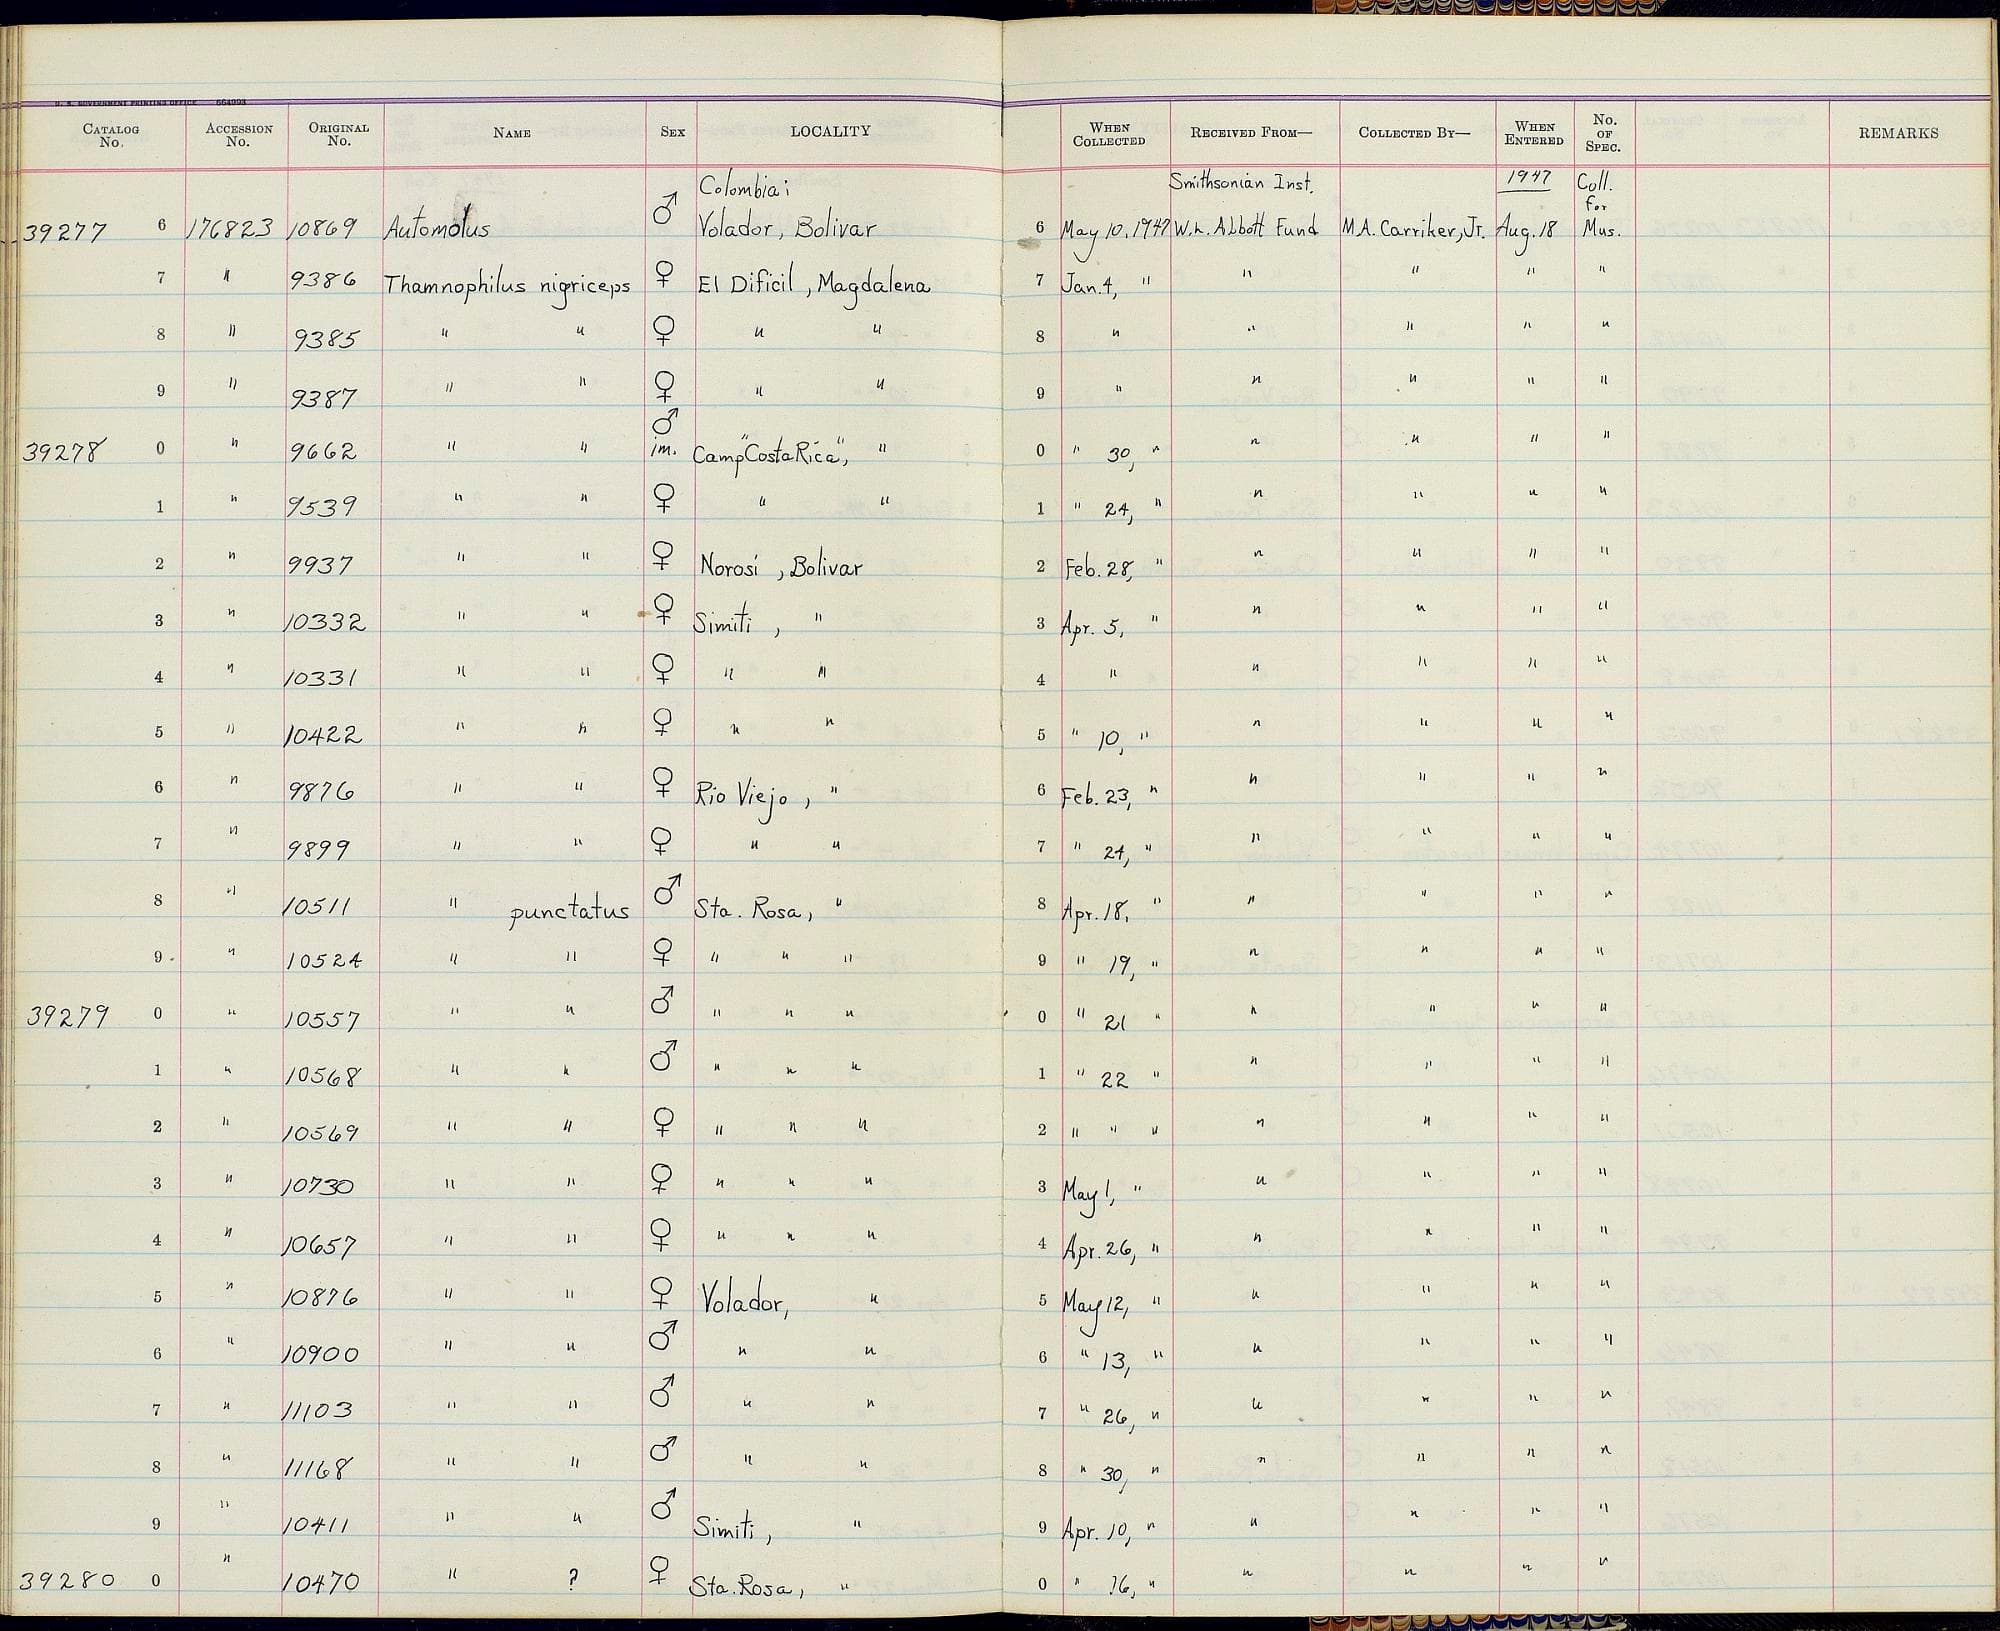 U. S. GOVERNMENT PRINTING OFFICE
CATALOG No. ACCESSION No. ORIGINAL No. NAME SEX LOCALITY WHEN COLLECTED RECEIVED FROM— COLLECTED BY— WHEN ENTERED No. OF SPEC. REMARKS
Colombia: Smithsonian Inst. 1947 Coll. for
39277 6 176823 10869 Automolus ♂ Volador, Bolivar 6 May 10, 1947 W.L. Abbott Fund M.A. Carriker, Jr. Aug. 18 Mus.
7 " 9386 Thamnophilus nigriceps ♀ El Dificil, Magdalena 7 Jan. 4, " " " " "
8 " 9385 " " ♀ " " 8 " " " " "
9 " 9387 " " ♀ " " 9 " " " " "
39278 0 " 9662 " " ♂ im. Camp "Costa Rica", " 0 " 30, " " " " "
1 " 9539 " " ♀ " " 1 " 24, " " " " "
2 " 9937 " " ♀ Norosi, Bolivar 2 Feb. 28, " " " " "
3 " 10332 " " ♀ Simiti, " 3 Apr. 5, " " " " "
4 " 10331 " " ♀ " " 4 " " " " "
5 " 10422 " " ♀ " " 5 " 10, " " " " "
6 " 9876 " " ♀ Rio Viejo, " 6 Feb. 23, " " " " "
7 " 9899 " " ♀ " " 7 " 24, " " " " "
8 " 10511 " punctatus ♂ Sta. Rosa, " 8 Apr. 18, " " " " "
9 " 10524 " " ♀ " " " 9 " 19, " " " " "
39279 0 " 10557 " " ♂ " " " 0 " 21 " " " " "
1 " 10568 " " ♂ " " " 1 " 22 " " " " "
2 " 10569 " " ♀ " " " 2 " " " " " " "
3 " 10730 " " ♀ " " " 3 May 1, " " " " "
4 " 10657 " " ♀ " " " 4 Apr. 26, " " " " "
5 " 10876 " " ♀ Volador, " 5 May 12, " " " " "
6 " 10900 " " ♂ " " 6 " 13, " " " " "
7 " 11103 " " ♂ " " 7 " 26, " " " " "
8 " 11168 " " ♂ " " 8 " 30, " " " " "
9 " 10411 " " ♂ Simiti, " 9 Apr. 10, " " " " "
39280 0 " 10470 " ? ♀ Sta. Rosa, " 0 " 16, " " " " "